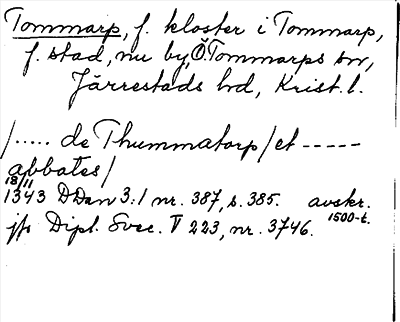 Tommarp, f. kloster i Tommarp,
f. stad, nu by, Ö. Tommarps sn,
Järrestads hd, Krist. l.
/..... de Thummatorp/et -----
abbates/
18/11
1343 DDan 3:1 nr. 387, s. 385. avskr.
1500-t.
jfr Dipl. Svec. V 223, nr. 3746.